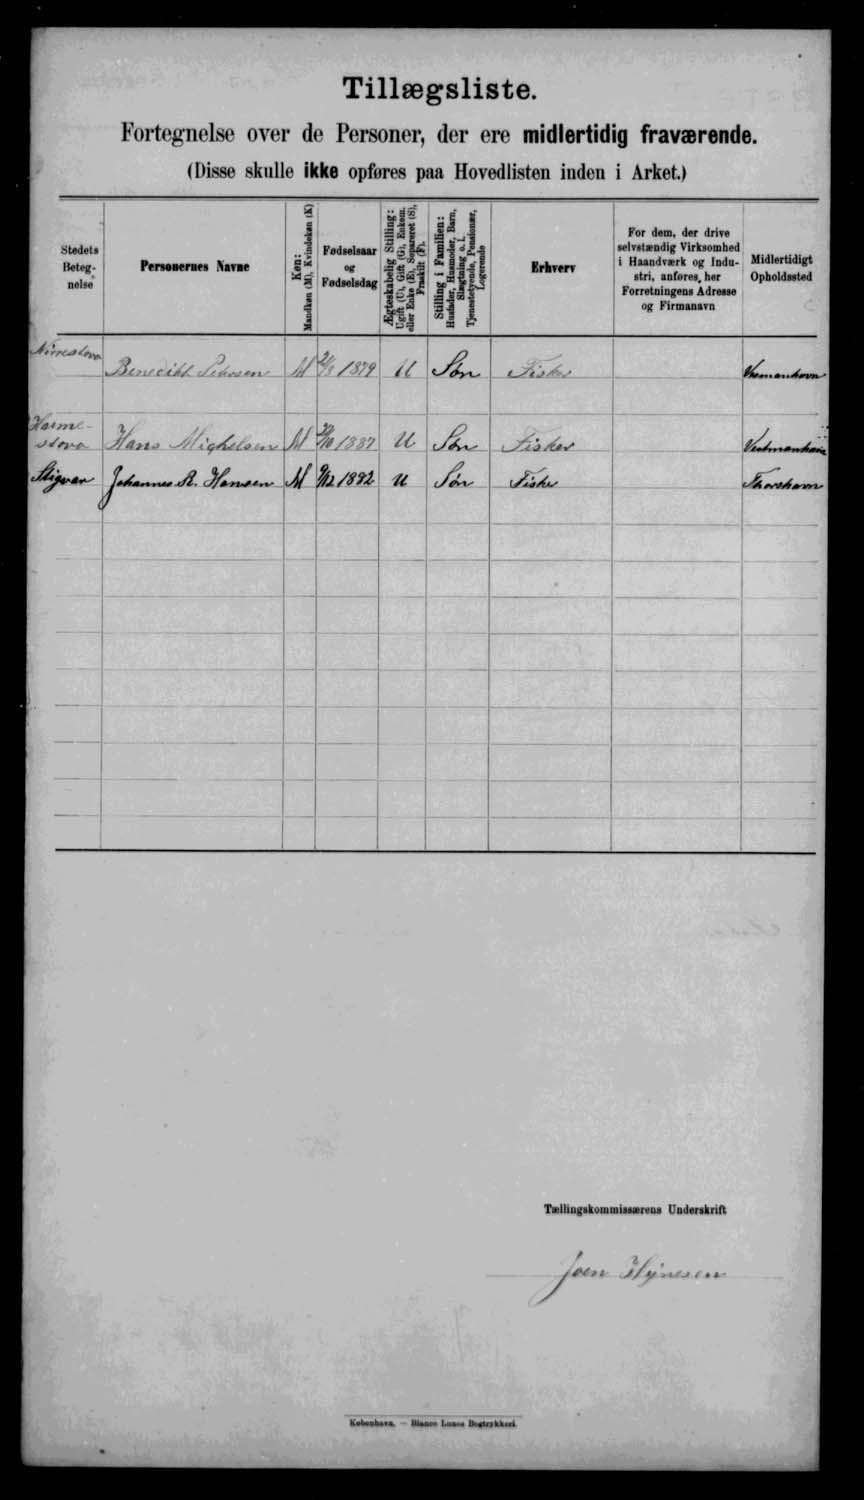 Tillægsliste.
Fortegnelse over de Personer, der ere midlertidig fraværende.
(Disse skulle ikke opføres paa Hovedlisten inden i Arket.)
Stedets Beteg-
nelse
Personernes Navne
Køn:
Mandkøn (M), Kvindekøn (K)
Fødselsaar
og
Fødselsdag
Ægteskabelig Stilling:
Ugift (U), Gift (G), Enkem.
eller Enke (E), Separeret (S),
Fraskilt (F).
Stilling i Familien:
Husfader, Husmoder, Barn,
Slægtning o. l.
Tjenestetyende, Pensionær,
Logerende
Erhverv
For dem, der drive
selvstændig Virksomhed
i Haandværk og Indu-
stri, anføres her
Forretningens Adresse
og Firmanavn
Midlertidigt
Opholdssted
Benedikt M 1879 U Søn Fisker
Hans Michelsen M 1887 U Søn Fisker
Johannes Hansen M 9/12 1892 U Søn Fisker Thorshavn
Tællingskommissærens Underskrift
Joen
København. — Bianco Lunos Bogtrykkeri.